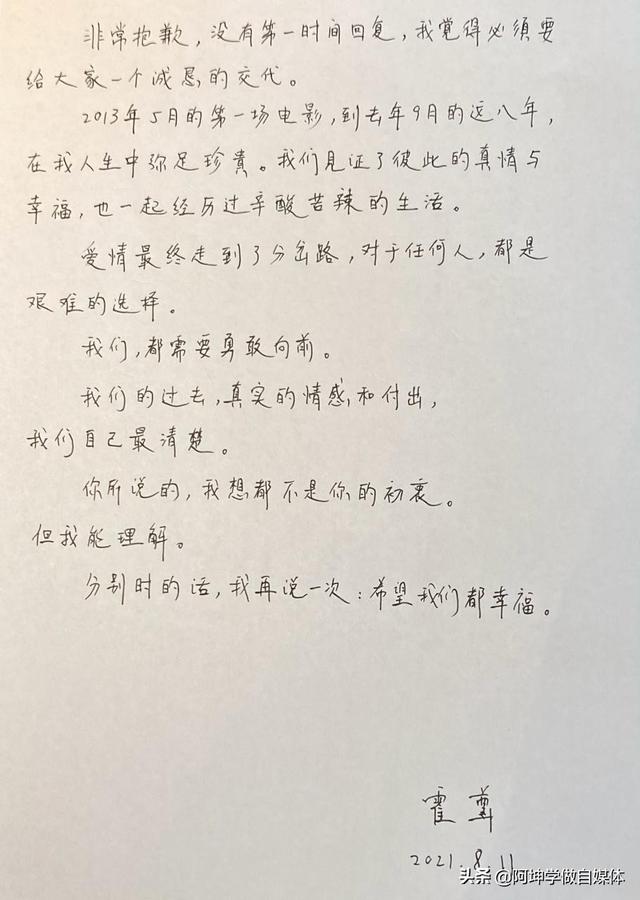 非常抱歉，没有第一时间回复，我觉得必须要
给大家一个诚恳的交代。
2013年5月的第一场电影，到去年9月的这八年，
在我人生中弥足珍贵。我们见证了彼此的真情与
幸福，也一起经历过辛酸苦辣的生活。
爱情最终走到了分岔路，对于任何人，都是
艰难的选择。
我们，都需要勇敢向前。
我们的过去，真实的情感和付出，
我们自己最清楚。
你所说的，我想都不是你的初衷。
但我能理解。
分别时的话，我再说一次：希望我们都幸福。
霍尊
2021.8.11
头条 @阿坤学做自媒体